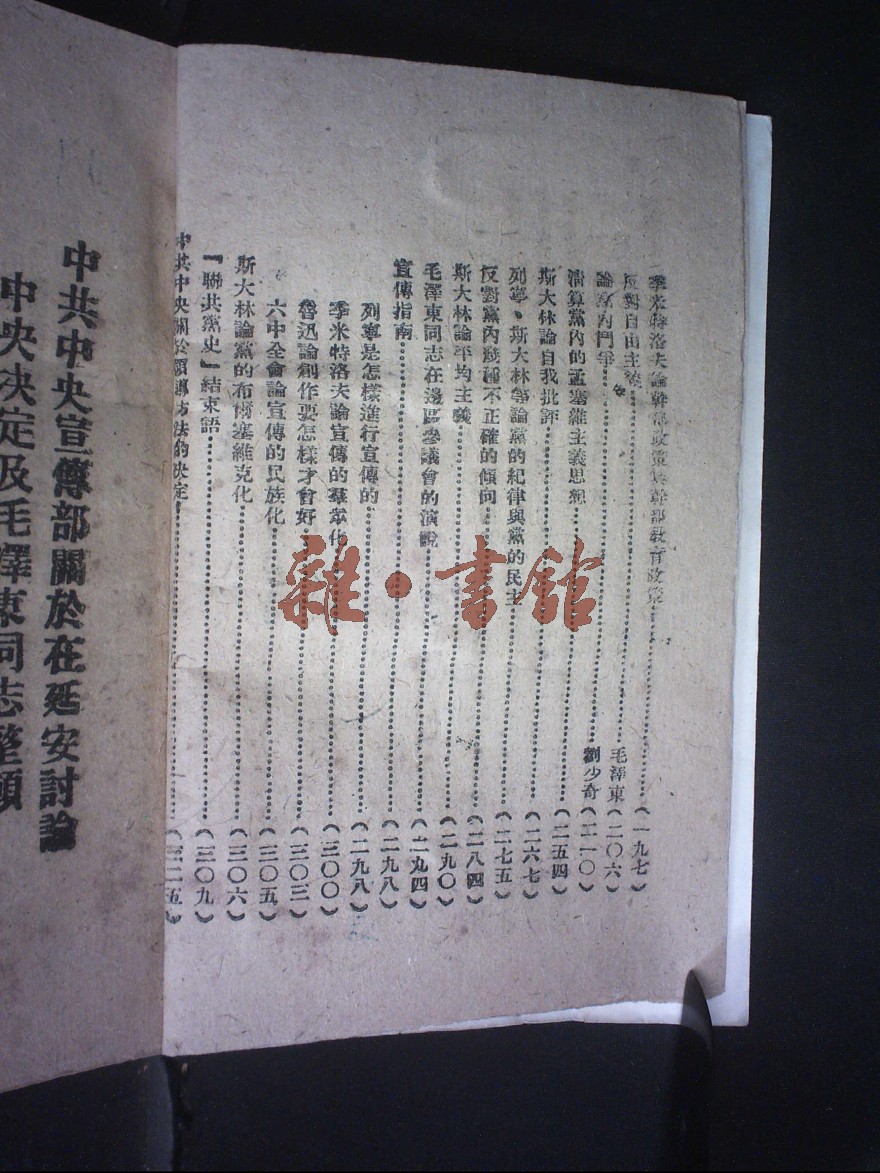 季米特洛夫論幹部政策與幹部教育政策（一九七）
反對自由主義 毛澤東（二〇六）
論黨內鬥爭 劉少奇（二一〇）
清算黨內的孟塞維主義思想（二五四）
斯大林論自我批評（二六七）
列寧、斯大林等論黨的紀律與黨的民主（二七五）
反對黨內幾種不正確的傾向（二八四）
斯大林論平均主義（二九〇）
毛澤東同志在邊區參議會的演說（二九四）
宣傳指南（二九八）
列寧是怎樣進行宣傳的（二九八）
季米特洛夫論宣傳的羣眾化（三〇〇）
魯迅論創作要怎樣才會好（三〇三）
六中全會論宣傳的民族化（三〇五）
斯大林論黨的布爾塞維克化（三〇六）
『聯共黨史』結束語（三〇九）
中共中央關於領導方法的決定（三二五）
中共中央宣傳部關於在延安討論
中央決定及毛澤東同志整頓
雜·書館